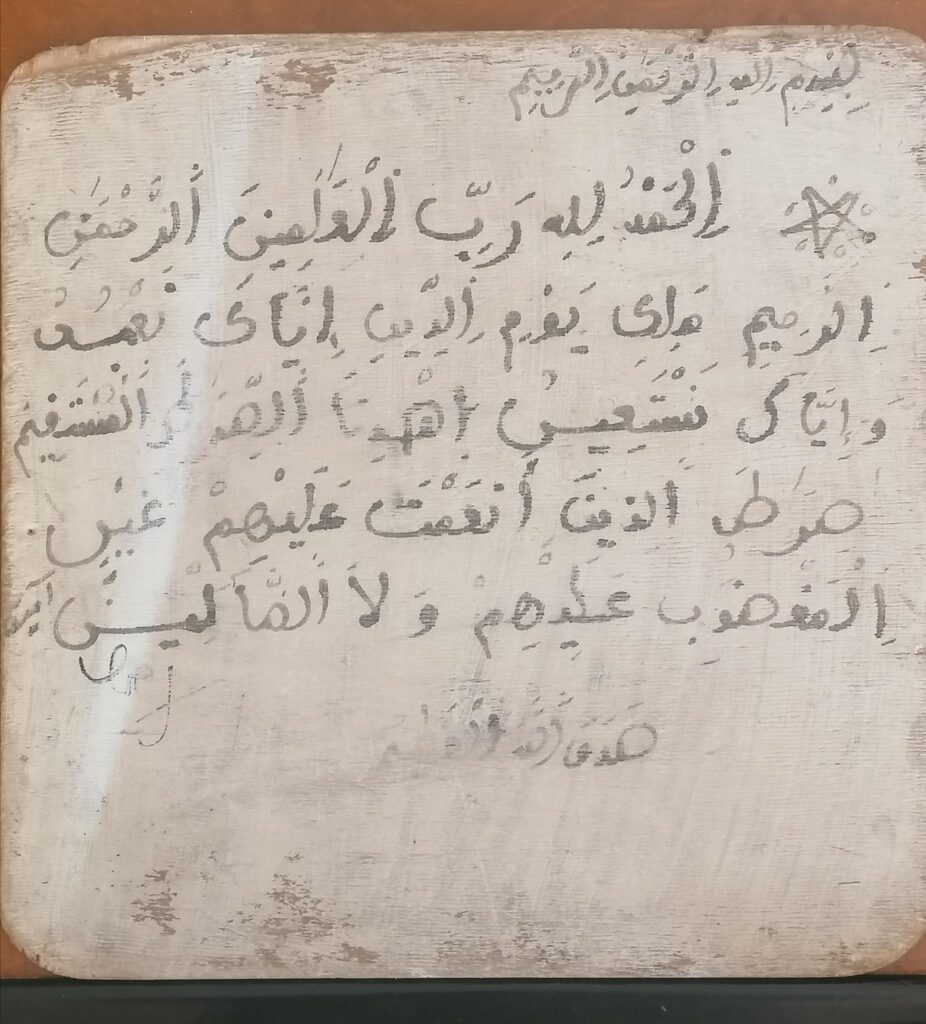 بسم الله الرحمن الرحيم
اِلْحَمْدُ لِلهِ رَبِّ اِلْعَٰلَمِينَ اَلرَّحْمَٰنِ
اِلرَّحِيمِ مَلِكِ يَوْمِ اِلدِّينِ إِيَّاكَ نَعْبُدُ
وَإِيَّاكَ نَسْتَعِينُ اِهْدِنَا اَلصِّرَٰطَ اَلْمُسْتَقِيمَ
صِرَٰطَ اَلذِينَ أَنْعَمْتَ عَلَيْهِمْ غَيْرِ
اِلْمَغْضُوبِ عَلَيْهِمْ وَلَا اَلضَّآلِّينَ آمين
صَدَقَ اَللَّهُ اَلْعَظِيم